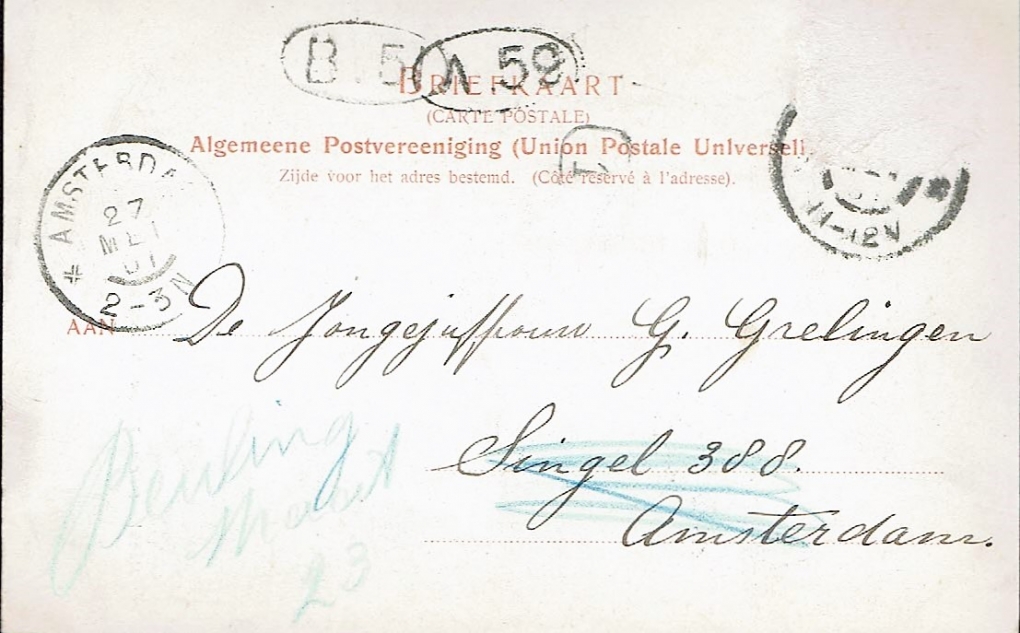 B. 5
A. 59
BRIEFKAART
(CARTE POSTALE)
Algemeene Postvereeniging (Union Postale Universel).
Zijde voor het adres bestemd. (Côté réservé à l'adresse).
AMSTERDA
27
MEI
01
2-3N
11-12V
AAN De Jongejuffrouw G. Grelingen
Singel 388.
Amsterdam.
Beuling
23